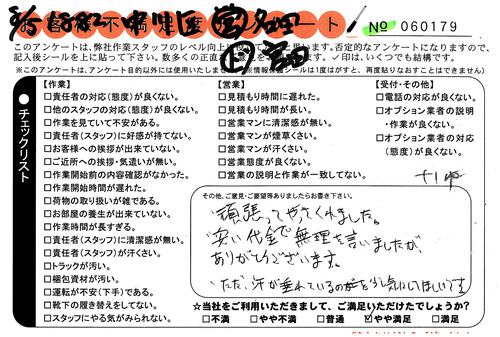 お客様不満足度アンケート
№ 060179
このアンケートは、弊社作業スタッフのレベル向上に
思います。否定的なアンケートになりますので、
記入後シールを上に貼って下さい。数多くの正直
✓印は、いくつでも結構です。
※このアンケートは、アンケート目的以外には使用いたしま
※情報保護シールは1度がすと、再度貼りなおすことはできません)
● チェックリスト
【作業】
□責任者の対応(態度)が良くない。
□他のスタッフの対応(態度)が良くない。
□作業を見ていて不安がある。
□責任者(スタッフ)に好感が持てない。
□お客様への挨拶が出来ていない。
□ご近所への挨拶・気遣いが無い。
□作業開始前の内容確認がなかった。
□作業開始時間が遅れた。
□荷物の取り扱いが雑である。
□お部屋の養生が出来ていない。
□作業時間が長すぎる。
□責任者(スタッフ)に清潔感が無い。
□責任者(スタッフ)が汗くさい。
□トラックが汚い。
□梱包資材が汚い。
□運転が不安(下手)である。
□靴下の履き替えをしてない。
□スタッフにやる気がみられない。
【営業】
□見積もり時間に遅れた。
□見積もり時間が長い。
□営業マンに清潔感が無い。
□営業マンが煙草くさい。
□営業マンが汗くさい。
□営業態度が良くない。
□営業の説明と作業が一致してない。
【受付・その他】
□電話の対応が良くない。
□オプション業者の説明
・作業が良くない。
□オプション業者の対応
(態度)が良くない。
その他、ご意見・ご要望等ありましたらお書き下さい。
頑張ってやってくれました。
安い代金で無理を言いましたが、
ありがとうございます。
ただ、汗が垂れているのが
少し気にしてほしいです
☆当社をご利用いただきまして、ご満足いただけたでしょうか?
□不満 □やや不満 □普通 ☑やや満足 □満足